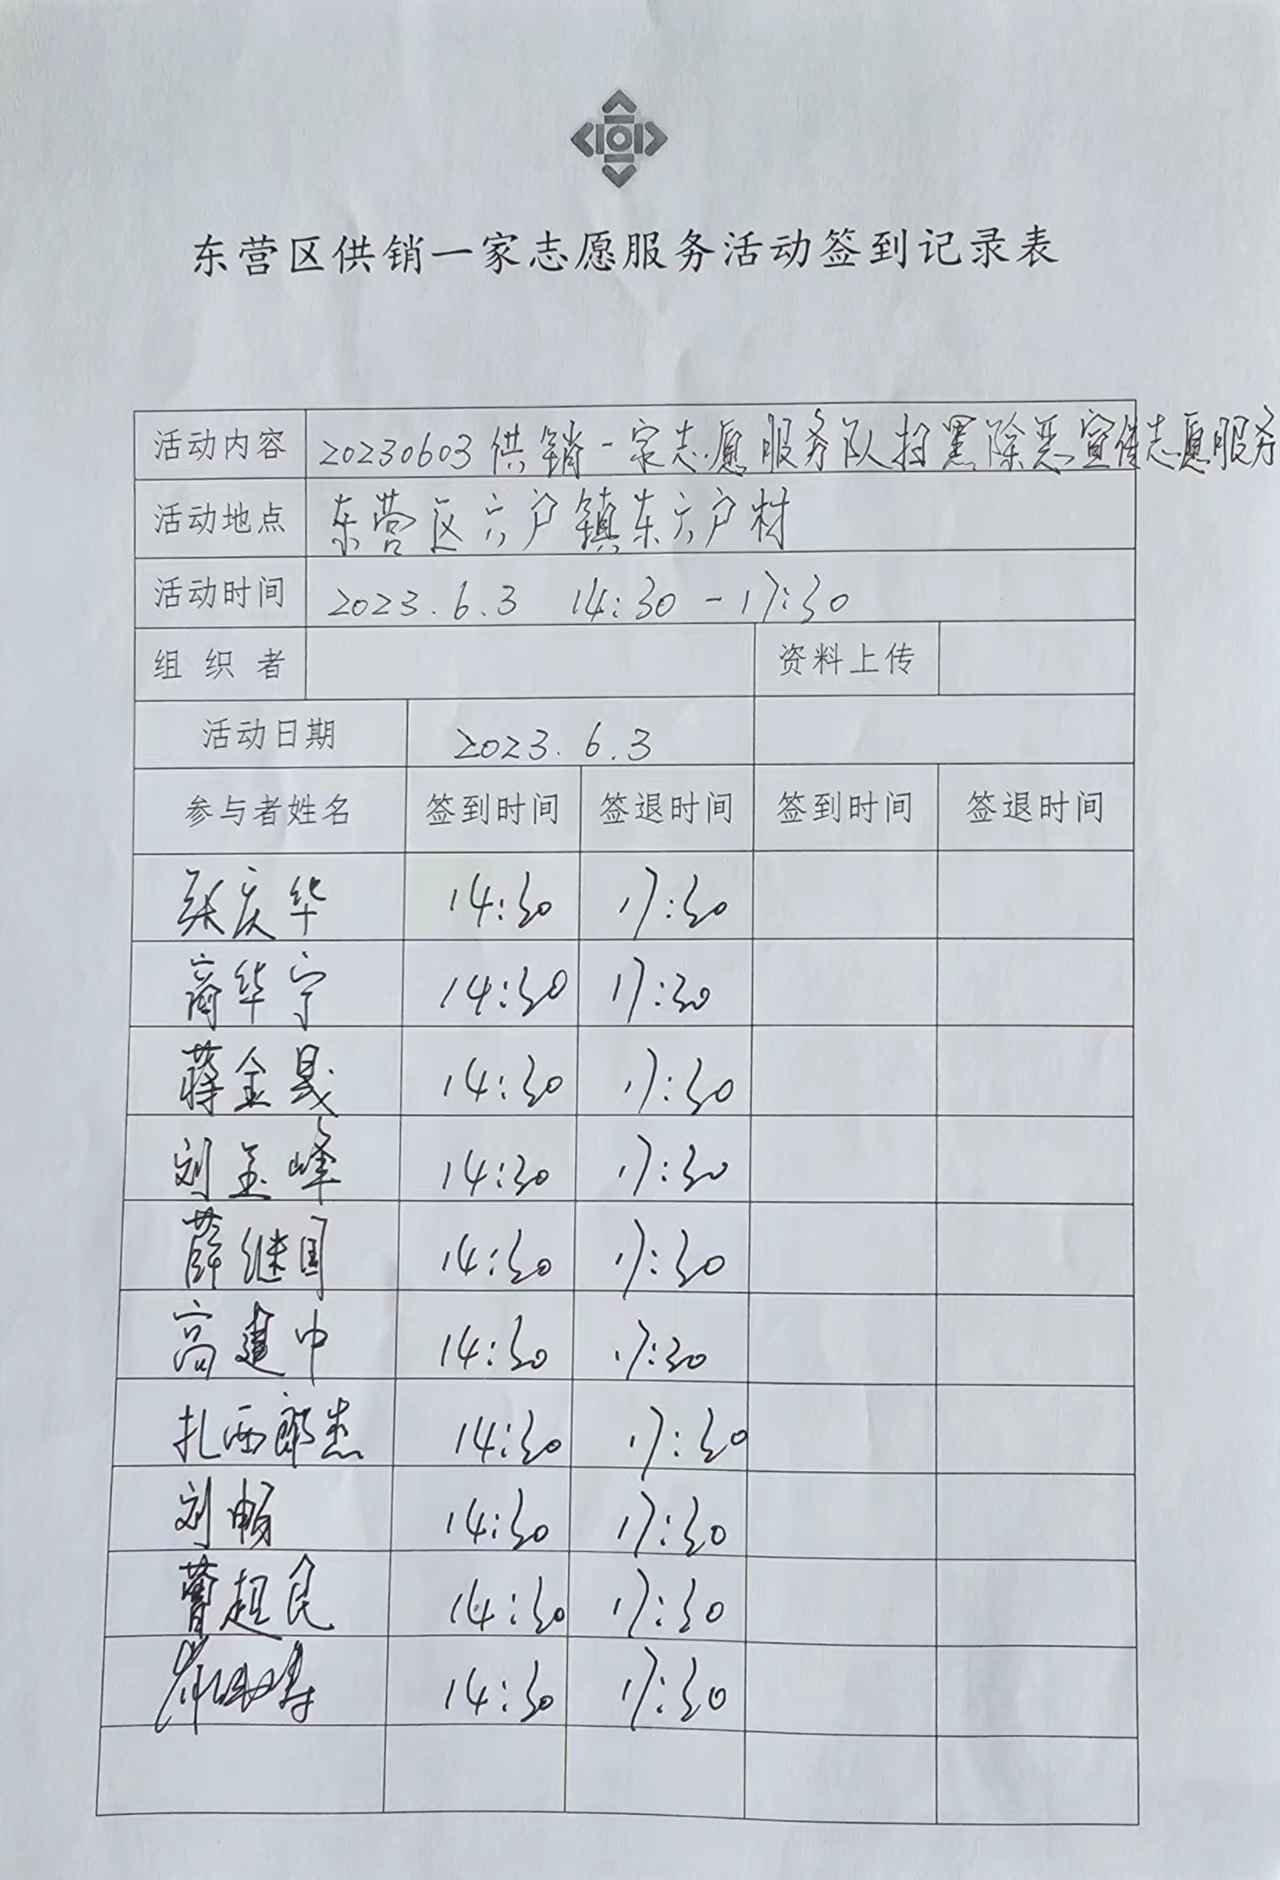 东营区供销一家志愿服务活动签到记录表
活动内容 20230603供销一家志愿服务队扫黑除恶宣传志愿服务
活动地点 东营区六户镇东六户村
活动时间 2023.6.3 14:30-17:30
组织者 资料上传
活动日期 2023.6.3
参与者姓名 签到时间 签退时间 签到时间 签退时间
张庆华 14:30 17:30
商华宁 14:30 17:30
蒋金晟 14:30 17:30
刘玉峰 14:30 17:30
薛继国 14:30 17:30
高建中 14:30 17:30
扎西郎杰 14:30 17:30
刘畅 14:30 17:30
曹超民 14:30 17:30
14:30 17:30